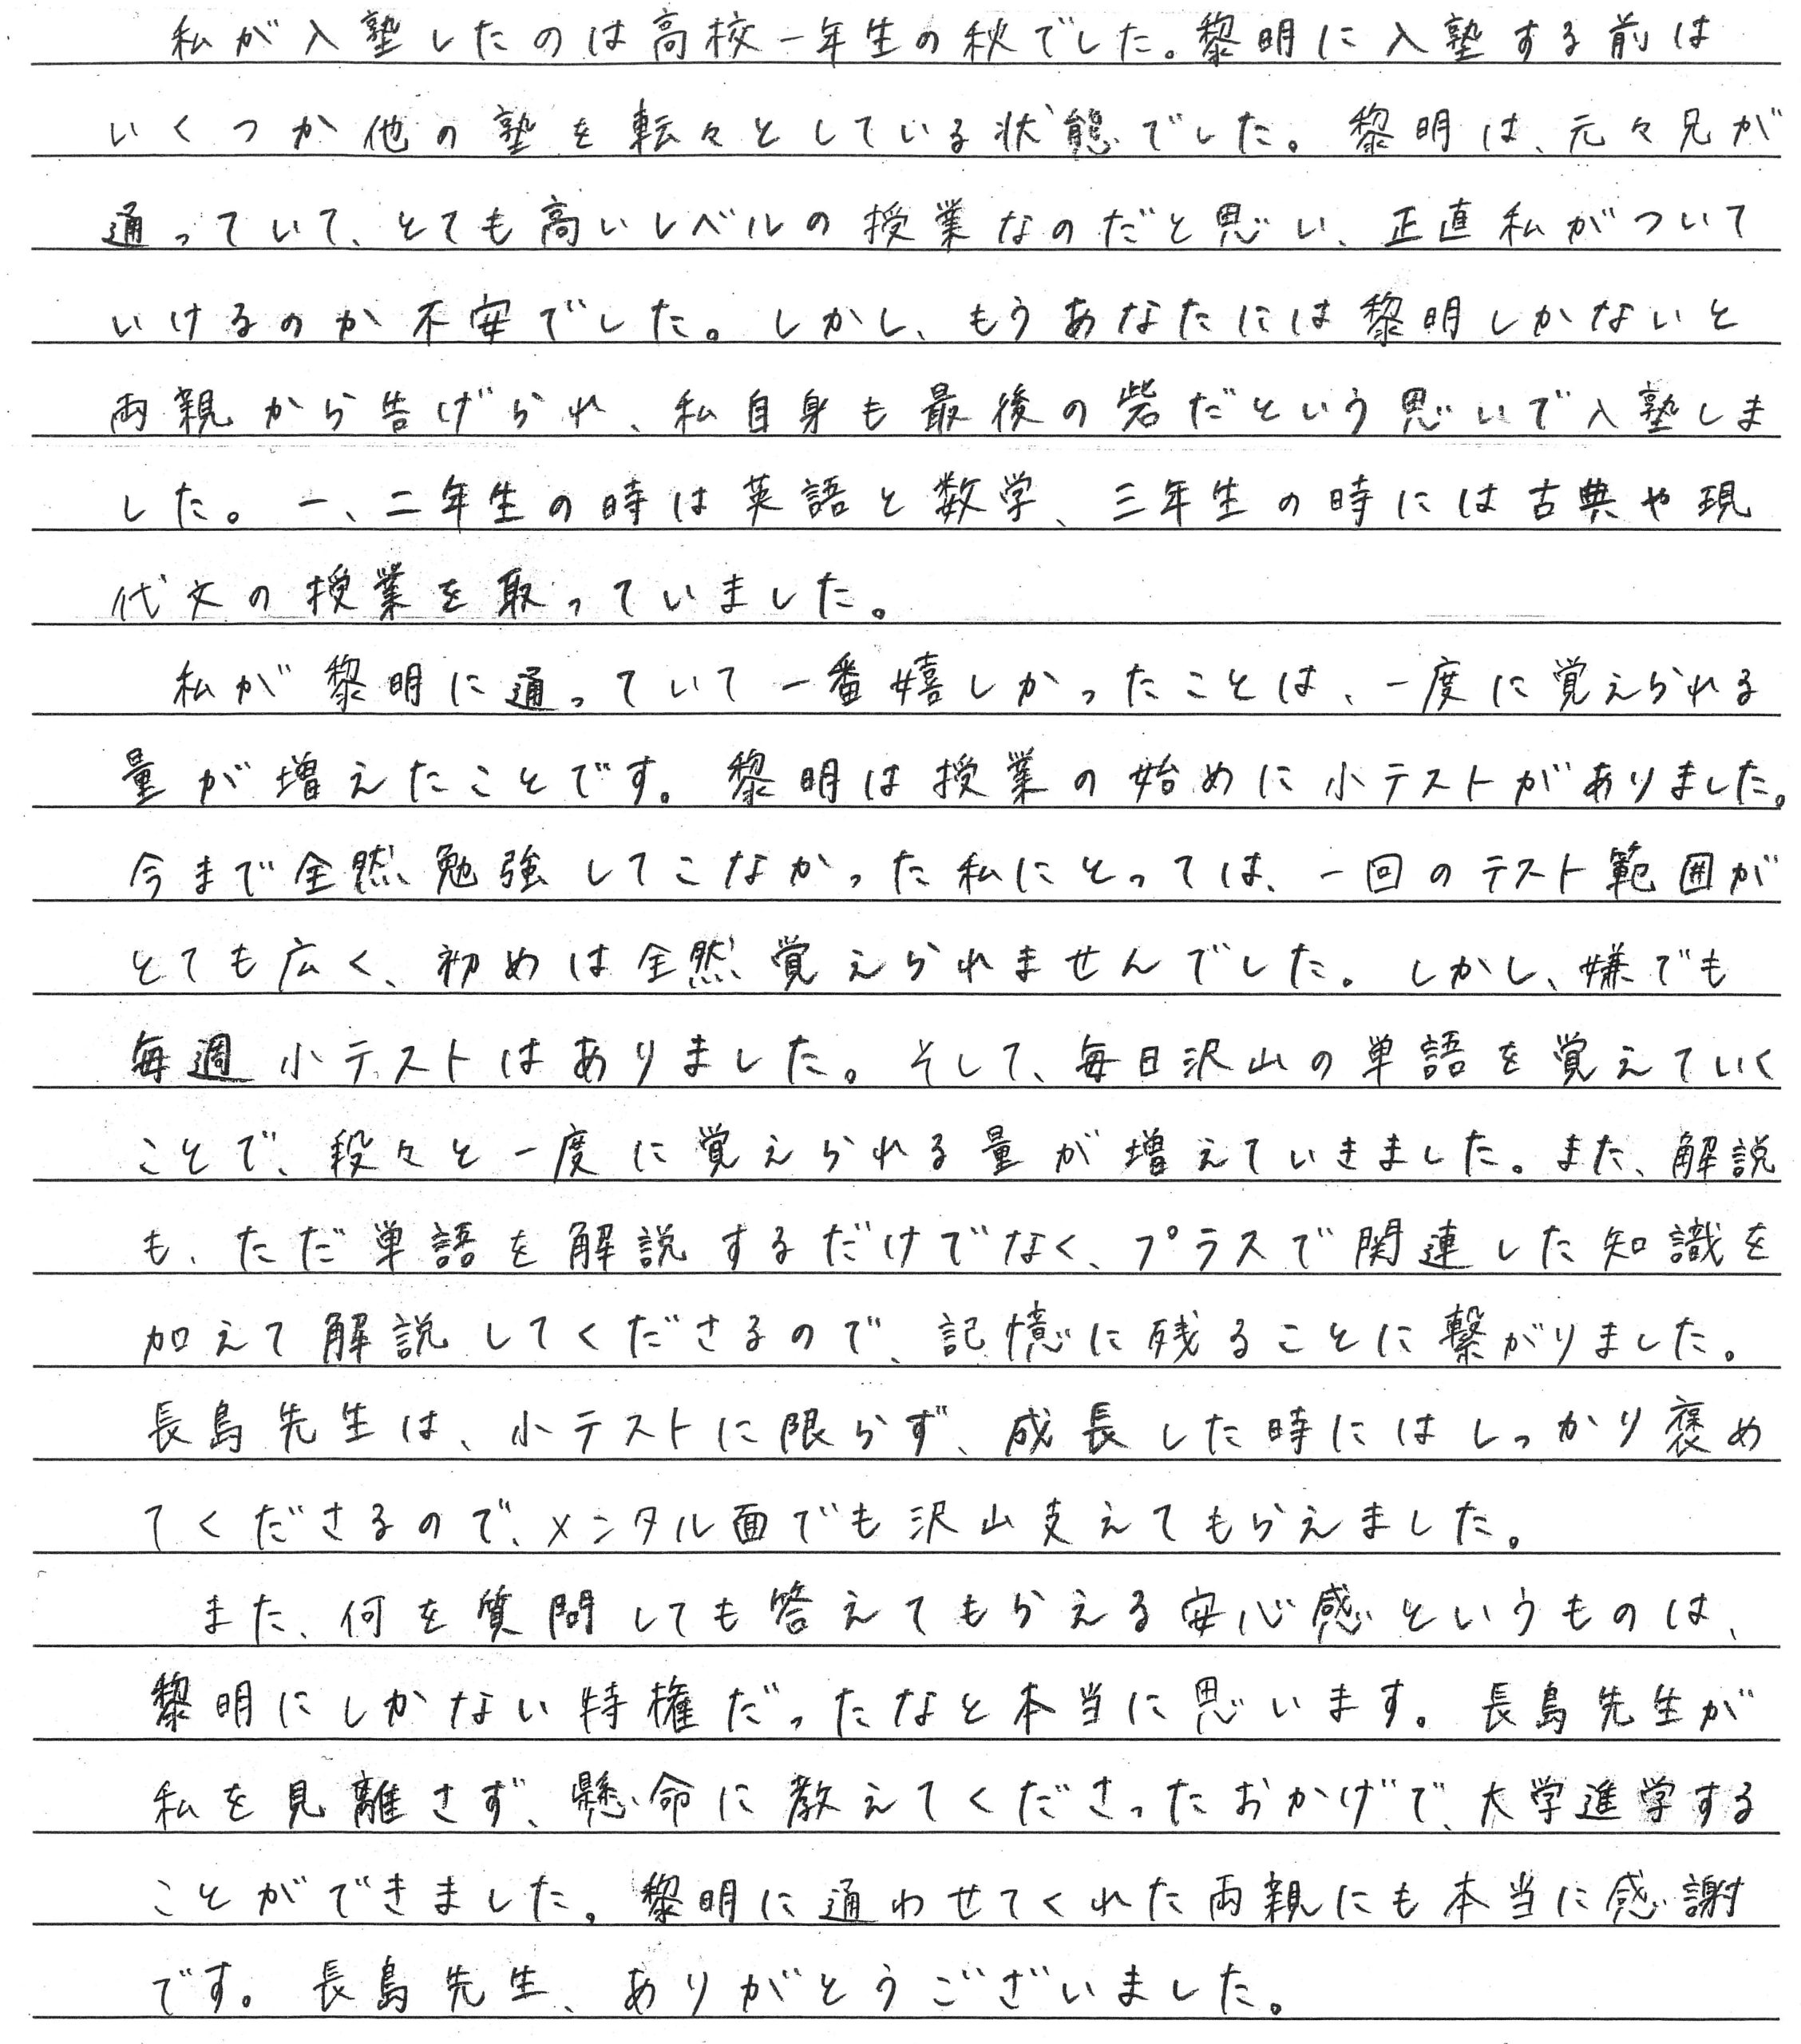 私が入塾したのは高校一年生の秋でした。黎明に入塾する前は
いくつか他の塾を転々としている状態でした。黎明は、元々兄が
通っていて、とても高いレベルの授業なのだと思い、正直私がついて
いけるのか不安でした。しかし、もうあなたには黎明しかないと
両親から告げられ、私自身も最後の砦だという思いで入塾しま
した。一、二年生の時は英語と数学、三年生の時には古典や現
代文の授業を取っていました。
私が黎明に通っていて一番嬉しかったことは、一度に覚えられる
量が増えたことです。黎明は授業の始めに小テストがありました。
今まで全然勉強してこなかった私にとっては、一回のテスト範囲が
とても広く、初めは全然覚えられませんでした。しかし、嫌でも
毎週小テストはありました。そして、毎日沢山の単語を覚えていく
ことで、段々と一度に覚えられる量が増えていきました。また、解説
も、ただ単語を解説するだけでなく、プラスで関連した知識を
加えて解説してくださるので、記憶に残ることに繋がりました。
長島先生は、小テストに限らず、成長した時にはしっかり褒め
てくださるので、メンタル面でも沢山支えてもらえました。
また、何を質問しても答えてもらえる安心感というものは、
黎明にしかない特権だったなと本当に思います。長島先生が
私を見離さず、懸命に教えてくださったおかげで、大学進学する
ことができました。黎明に通わせてくれた両親にも本当に感謝
です。長島先生、ありがとうございました。